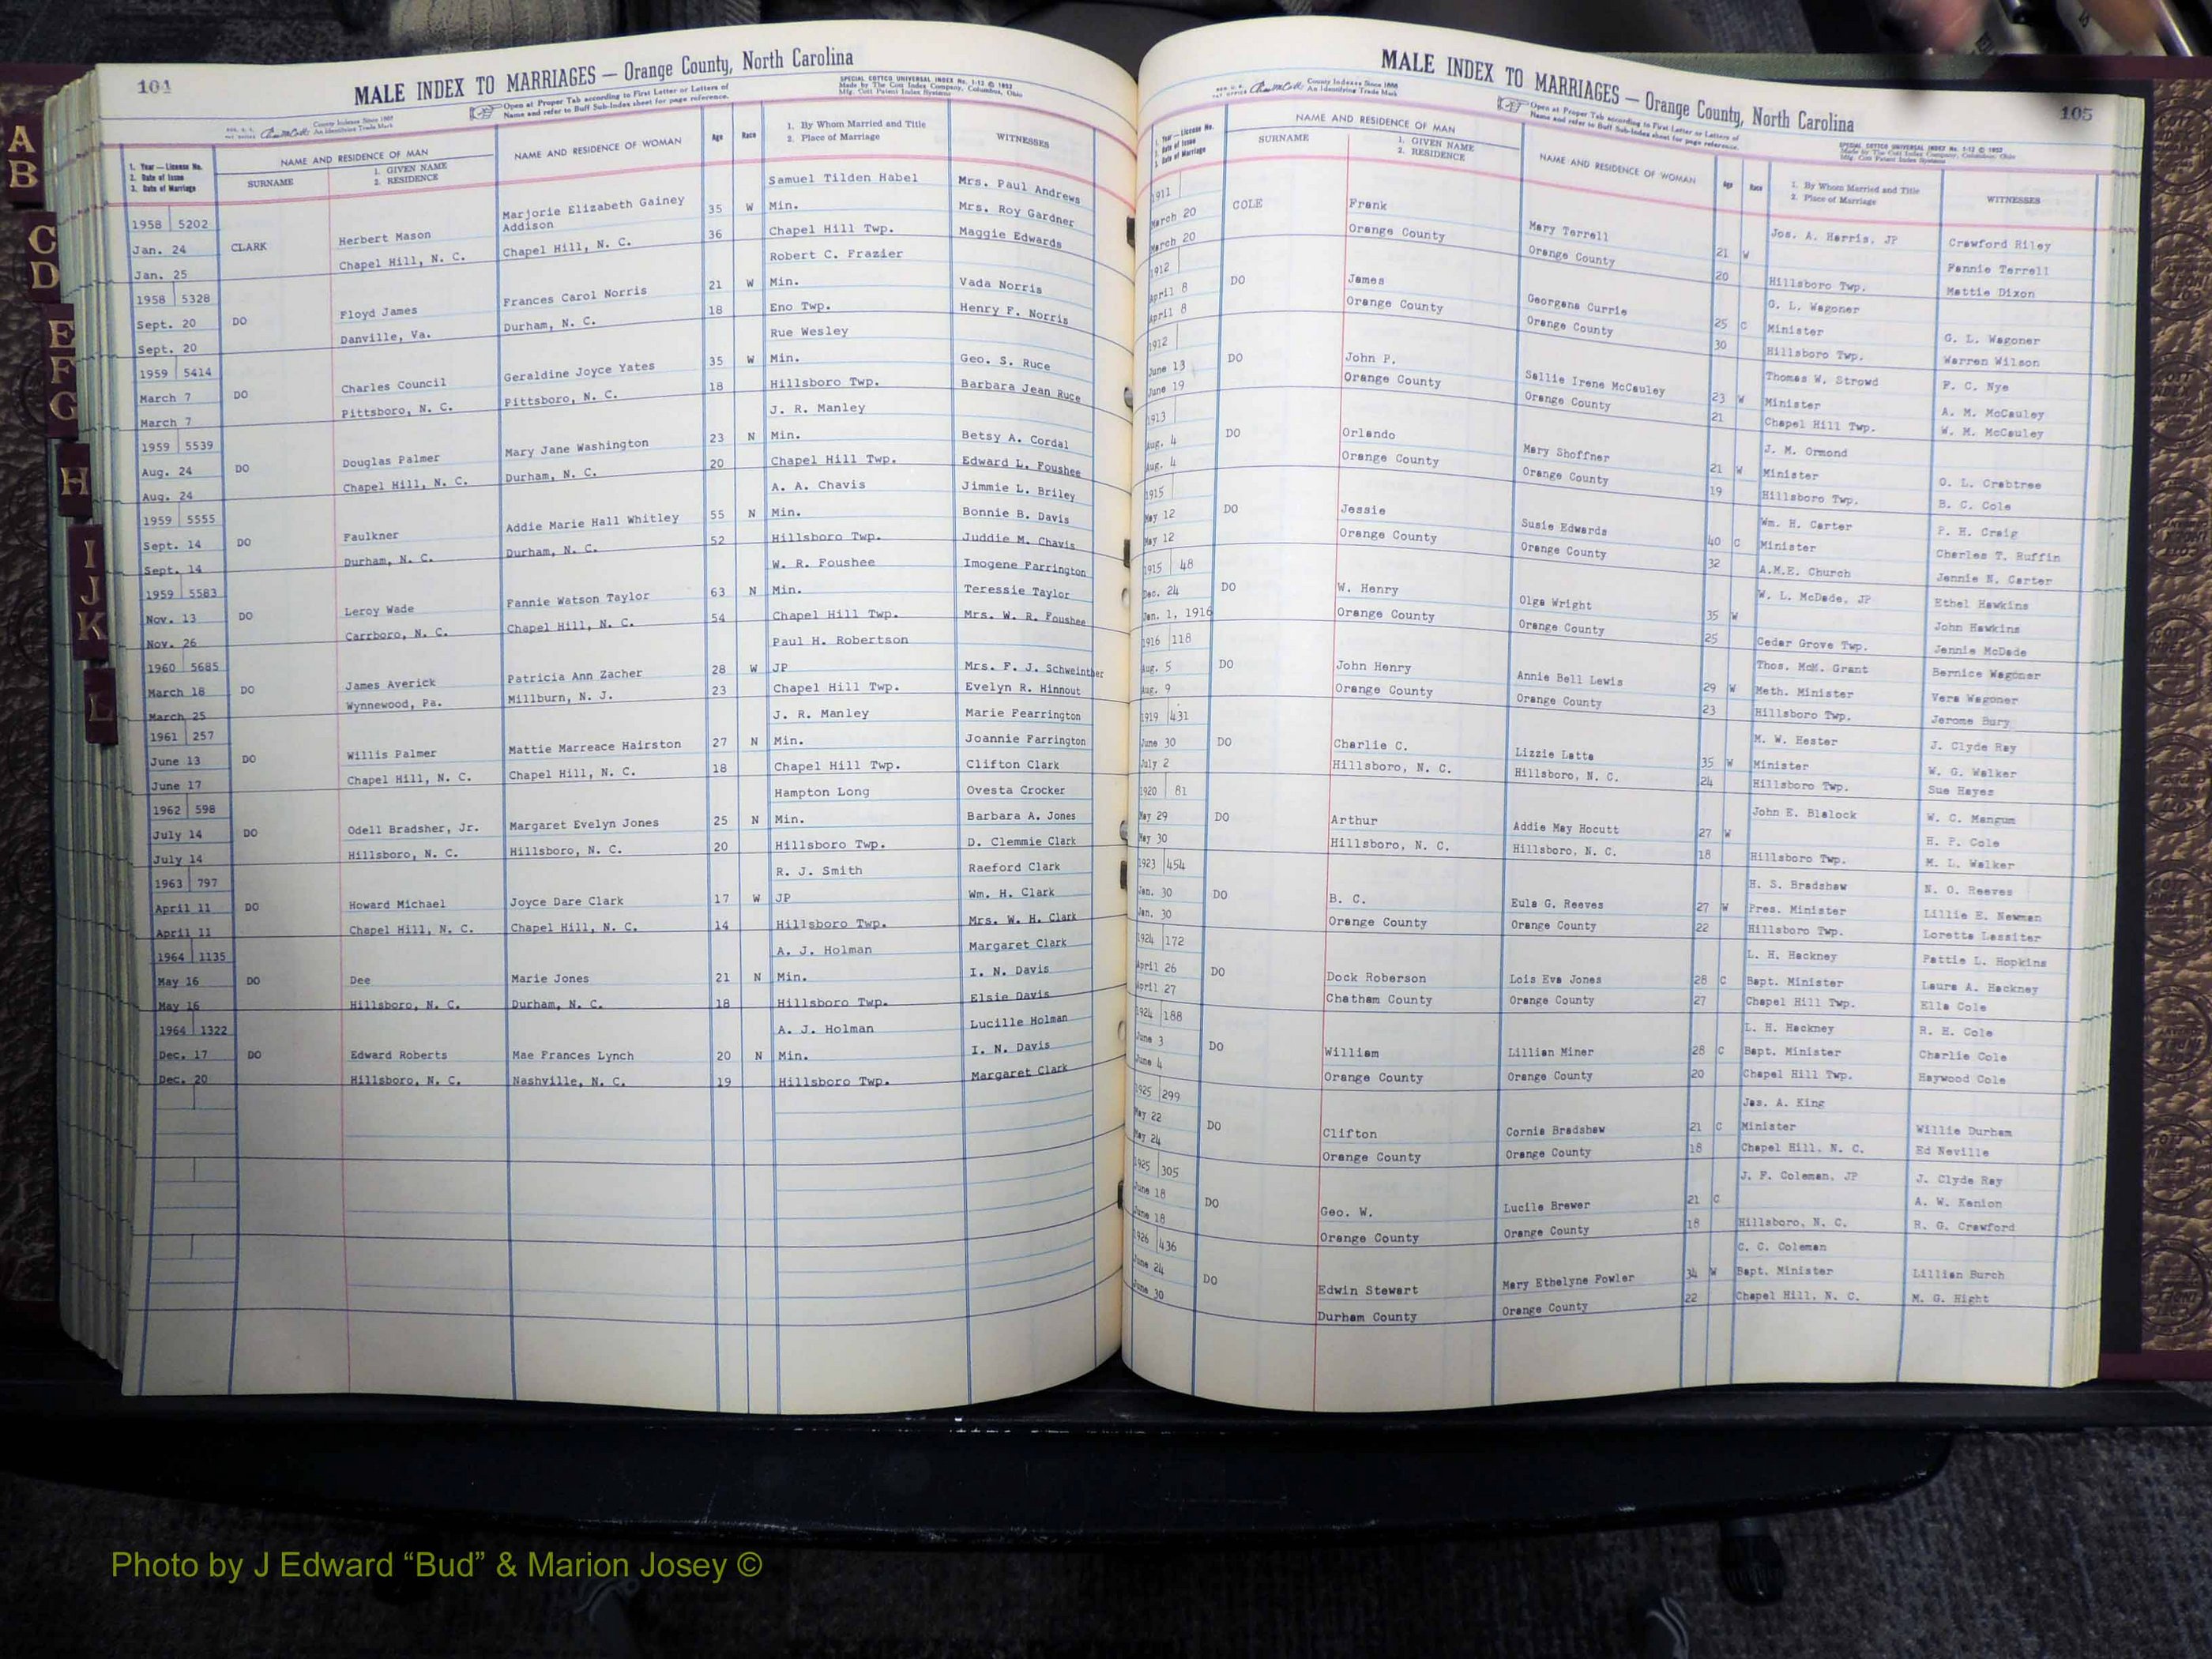 104
MALE INDEX TO MARRIAGES — Orange County, North Carolina
Open at Proper Tab according to First Letter or Letters of
Name and refer to Buff Sub-Index sheet for page reference.
SPECIAL COTTCO UNIVERSAL INDEX No. 1-12 © 1952
Made by The Cott Index Company, Columbus, Ohio
Mfg. Cott Patent Index Systems
County Indexes Since 1888
An Identifying Trade Mark
1. Year — License No.
2. Date of Issue
3. Date of Marriage
NAME AND RESIDENCE OF MAN
SURNAME
1. GIVEN NAME
2. RESIDENCE
NAME AND RESIDENCE OF WOMAN
Age
Race
1. By Whom Married and Title
2. Place of Marriage
WITNESSES
Samuel Tilden Habel Mrs. Paul Andrews
1958 5202 Marjorie Elizabeth Gainey Addison 35 W Min. Mrs. Roy Gardner
Jan. 24 CLARK Herbert Mason 36 Chapel Hill Twp. Maggie Edwards
Jan. 25 Chapel Hill, N. C. Chapel Hill, N. C.
Robert C. Frazier
1958 5328 Frances Carol Norris 21 W Min. Vada Norris
Sept. 20 DO Floyd James 18 Eno Twp. Henry F. Norris
Sept. 20 Danville, Va. Durham, N. C.
Rue Wesley
1959 5414 Geraldine Joyce Yates 35 W Min. Geo. S. Ruce
March 7 DO Charles Council 18 Hillsboro Twp. Barbara Jean Ruce
March 7 Pittsboro, N. C. Pittsboro, N. C.
J. R. Manley
1959 5539 Mary Jane Washington 23 N Min. Betsy A. Cordal
Aug. 24 DO Douglas Palmer 20 Chapel Hill Twp. Edward L. Foushee
Aug. 24 Chapel Hill, N. C. Durham, N. C.
A. A. Chavis Jimmie L. Briley
1959 5555 Addie Marie Hall Whitley 55 N Min. Bonnie B. Davis
Sept. 14 DO Faulkner 52 Hillsboro Twp. Juddie M. Chavis
Sept. 14 Durham, N. C. Durham, N. C.
W. R. Foushee Imogene Farrington
1959 5583 Fannie Watson Taylor 63 N Min. Teressie Taylor
Nov. 13 DO Leroy Wade 54 Chapel Hill Twp. Mrs. W. R. Foushee
Nov. 26 Carrboro, N. C. Chapel Hill, N. C.
Paul H. Robertson
1960 5685 Patricia Ann Zacher 28 W JP Mrs. F. J. Schweinther
March 18 DO James Averick 23 Chapel Hill Twp. Evelyn R. Hinnout
March 25 Wynnewood, Pa. Millburn, N. J.
J. R. Manley Marie Fearrington
1961 257 Mattie Marreace Hairston 27 N Min. Joannie Farrington
June 13 DO Willis Palmer 18 Chapel Hill Twp. Clifton Clark
June 17 Chapel Hill, N. C. Chapel Hill, N. C.
Hampton Long Ovesta Crocker
1962 598 Margaret Evelyn Jones 25 N Min. Barbara A. Jones
July 14 DO Odell Bradsher, Jr. 20 Hillsboro Twp. D. Clemmie Clark
July 14 Hillsboro, N. C. Hillsboro, N. C.
R. J. Smith Raeford Clark
1963 797 Joyce Dare Clark 17 W JP Wm. H. Clark
April 11 DO Howard Michael 14 Hillsboro Twp. Mrs. W. H. Clark
April 11 Chapel Hill, N. C. Chapel Hill, N. C.
1964 1135 A. J. Holman Margaret Clark
May 16 DO Dee Marie Jones 21 N Min. I. N. Davis
May 16 Hillsboro, N. C. Durham, N. C. 18 Hillsboro Twp. Elsie Davis
1964 1322 A. J. Holman Lucille Holman
Dec. 17 DO Edward Roberts Mae Frances Lynch 20 N Min. I. N. Davis
Dec. 20 Hillsboro, N. C. Nashville, N. C. 19 Hillsboro Twp. Margaret Clark
MALE INDEX TO MARRIAGES — Orange County, North Carolina
105
County Indexes Since 1888
An Identifying Trade Mark
Open at Proper Tab according to First Letter or Letters of
Name and refer to Buff Sub-Index sheet for page reference.
SPECIAL COTTCO UNIVERSAL INDEX No. 1-12 © 1952
Made by The Cott Index Company, Columbus, Ohio
Mfg. Cott Patent Index Systems
1. Year — License No.
2. Date of Issue
3. Date of Marriage
NAME AND RESIDENCE OF MAN
SURNAME
1. GIVEN NAME
2. RESIDENCE
NAME AND RESIDENCE OF WOMAN
Age
Race
1. By Whom Married and Title
2. Place of Marriage
WITNESSES
1911 Jos. A. Harris, JP Crawford Riley
March 20 COLE Frank Mary Terrell 21 W Fannie Terrell
March 20 Orange County Orange County 20 Hillsboro Twp. Mattie Dixon
1912 G. L. Wagoner
April 8 DO James Georgana Currie 25 C Minister G. L. Wagoner
April 8 Orange County Orange County 30 Hillsboro Twp. Warren Wilson
1912 Thomas W. Strowd F. C. Nye
June 13 DO John P. Sallie Irene McCauley 23 W Minister A. M. McCauley
June 19 Orange County Orange County 21 Chapel Hill Twp. W. M. McCauley
1913 J. M. Ormond
Aug. 4 DO Orlando Mary Shoffner 21 W Minister O. L. Crabtree
Aug. 4 Orange County Orange County 19 Hillsboro Twp. B. C. Cole
1915 Wm. H. Carter P. H. Craig
May 12 DO Jessie Susie Edwards 40 C Minister Charles T. Ruffin
May 12 Orange County Orange County 32 A.M.E. Church Jennie N. Carter
1915 48 W. L. McDade, JP Ethel Hawkins
Dec. 24 DO W. Henry Olga Wright 35 W John Hawkins
Jan. 1, 1916 Orange County Orange County 25 Cedar Grove Twp. Jennie McDade
1916 118 Thos. McM. Grant Bernice Wagoner
Aug. 5 DO John Henry Annie Bell Lewis 29 W Meth. Minister Vera Wagoner
Aug. 9 Orange County Orange County 23 Hillsboro Twp. Jerome Bury
1919 431 M. W. Hester J. Clyde Ray
June 30 DO Charlie C. Lizzie Latta 35 W Minister W. G. Walker
July 2 Hillsboro, N. C. Hillsboro, N. C. 24 Hillsboro Twp. Sue Hayes
1920 81 John E. Blalock W. C. Mangum
May 29 DO Arthur Addie May Hocutt 27 W H. P. Cole
May 30 Hillsboro, N. C. Hillsboro, N. C. 18 Hillsboro Twp. M. L. Walker
1923 454 H. S. Bradshaw N. O. Reeves
Jan. 30 DO B. C. Eula G. Reeves 27 W Pres. Minister Lillie E. Newman
Jan. 30 Orange County Orange County 22 Hillsboro Twp. Loretta Lassiter
1924 172 L. H. Hackney Pattie L. Hopkins
April 26 DO Dock Roberson Lois Eva Jones 28 C Bapt. Minister Laura A. Hackney
April 27 Chatham County Orange County 27 Chapel Hill Twp. Ella Cole
1924 188 L. H. Hackney R. H. Cole
June 3 DO William Lillian Miner 28 C Bapt. Minister Charlie Cole
June 4 Orange County Orange County 20 Chapel Hill Twp. Haywood Cole
1925 299 Jas. A. King
May 22 DO Clifton Cornie Bradshaw 21 C Minister Willie Durham
May 24 Orange County Orange County 18 Chapel Hill, N. C. Ed Neville
1925 305 J. F. Coleman, JP J. Clyde Ray
June 18 DO Geo. W. Lucile Brewer 21 C A. W. Kenion
June 18 Orange County Orange County 18 Hillsboro, N. C. R. G. Crawford
1926 436 C. C. Coleman
June 24 DO Edwin Stewart Mary Ethelyne Fowler 34 W Bapt. Minister Lillian Burch
June 30 Durham County Orange County 22 Chapel Hill, N. C. M. G. Hight
A
B
C
D
E
F
G
H
I
J
K
L
Photo by J Edward “Bud” & Marion Josey ©